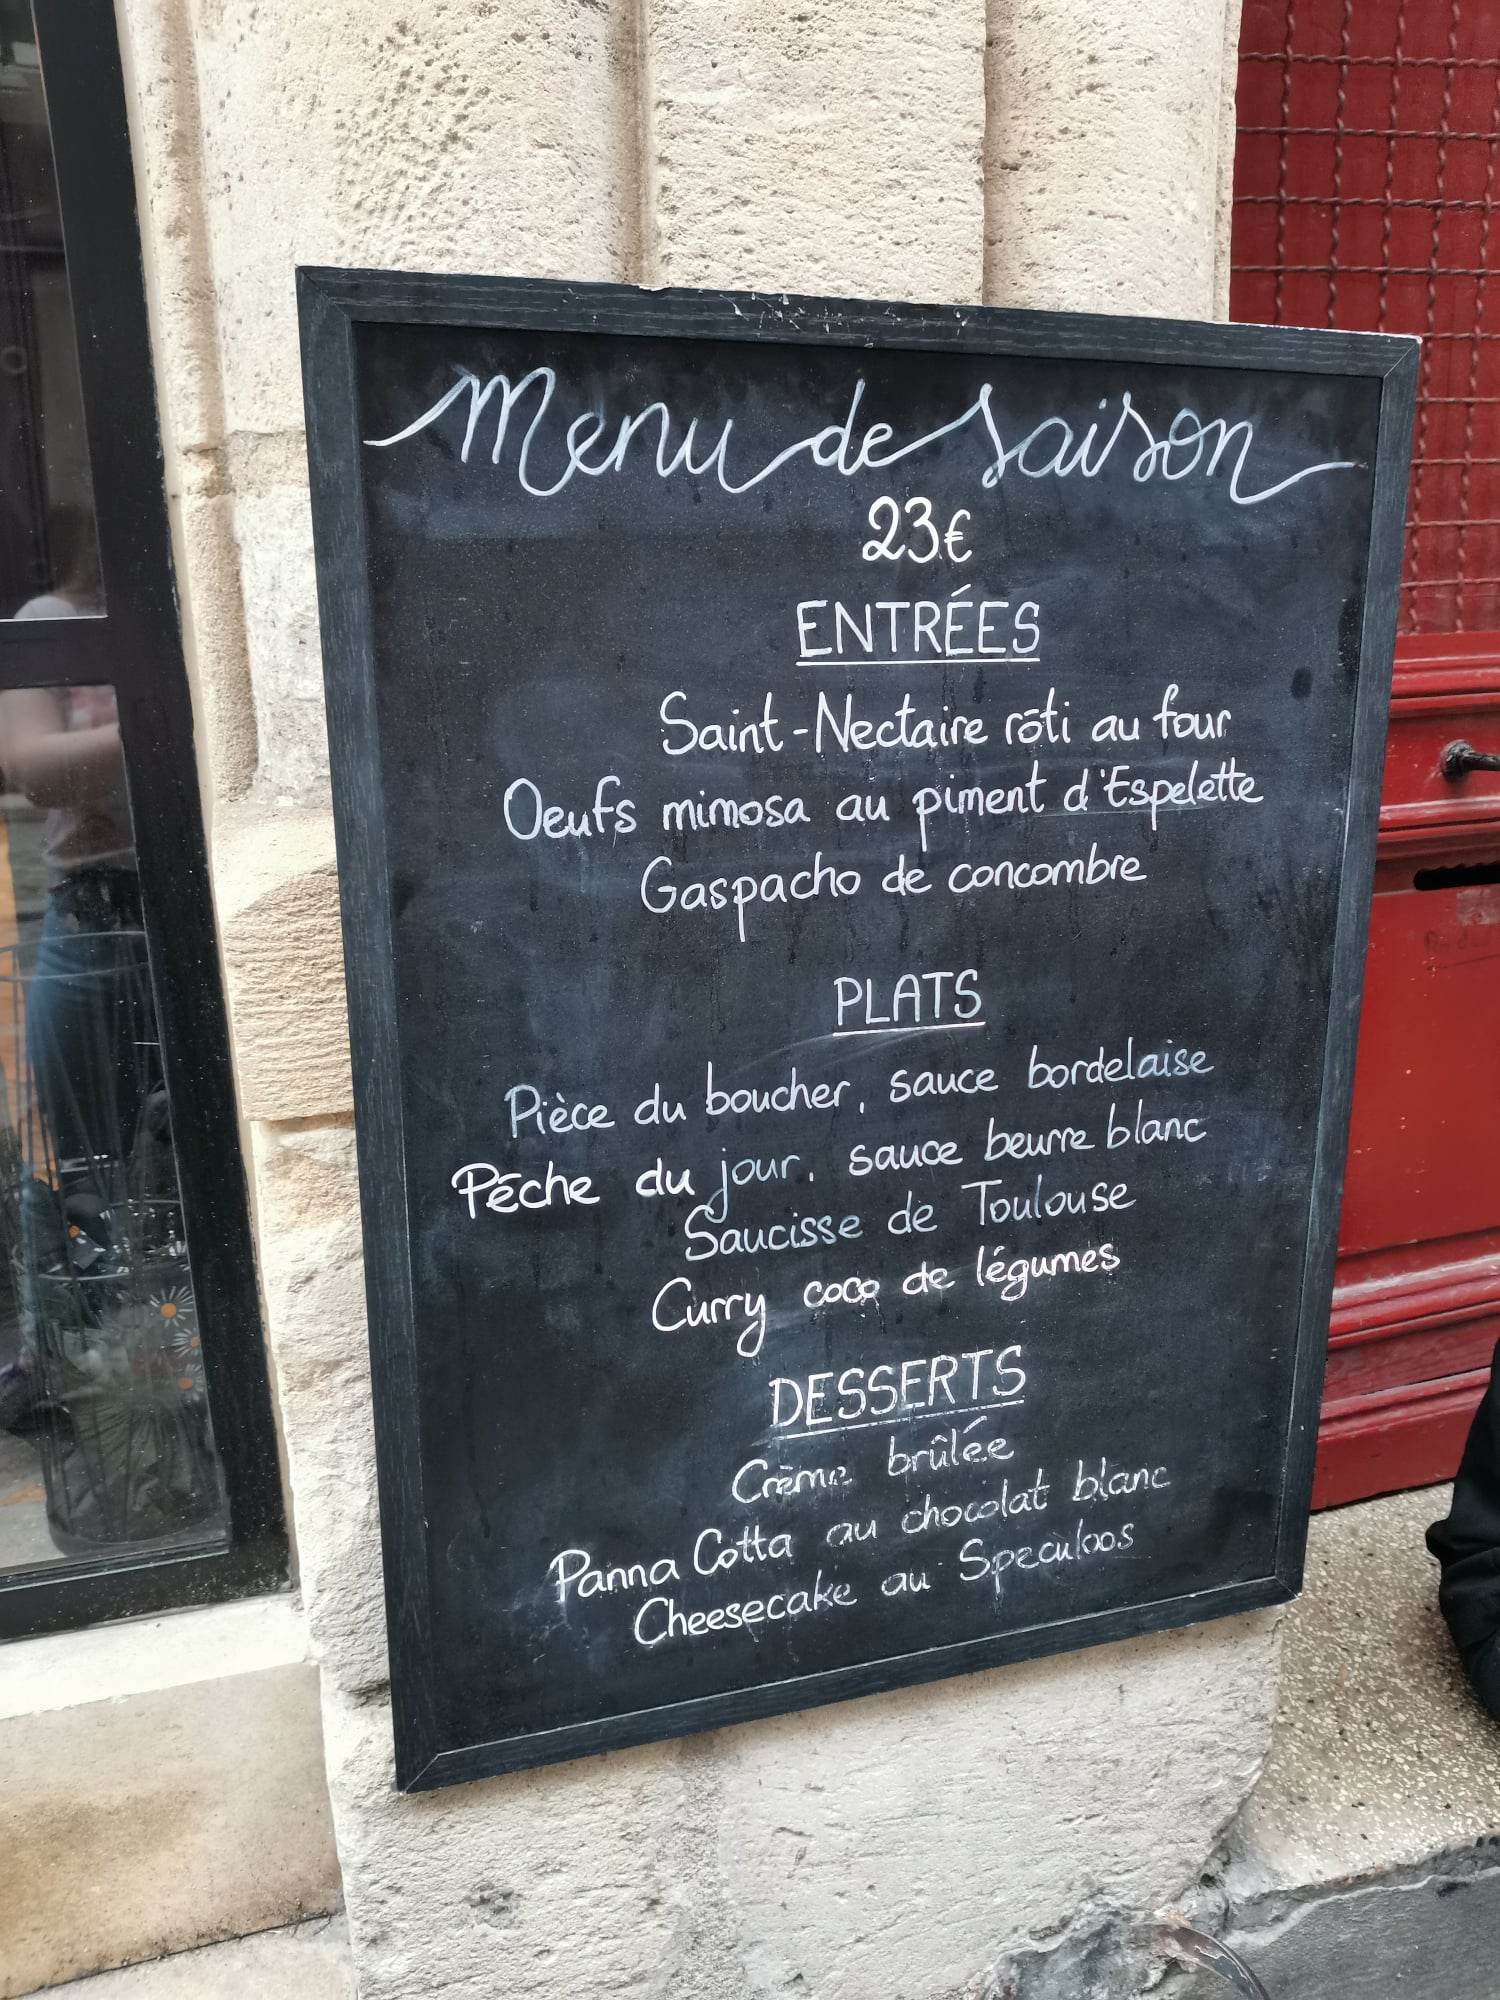 Menu de saison
23€
ENTRÉES
Saint-Nectaire rôti au four
Oeufs mimosa au piment d'Espelette
Gaspacho de concombre
PLATS
Pièce du boucher, sauce bordelaise
Pêche du jour, sauce beurre blanc
Saucisse de Toulouse
Curry coco de légumes
DESSERTS
Crème brûlée
Panna Cotta au chocolat blanc
Cheesecake au Speculoos